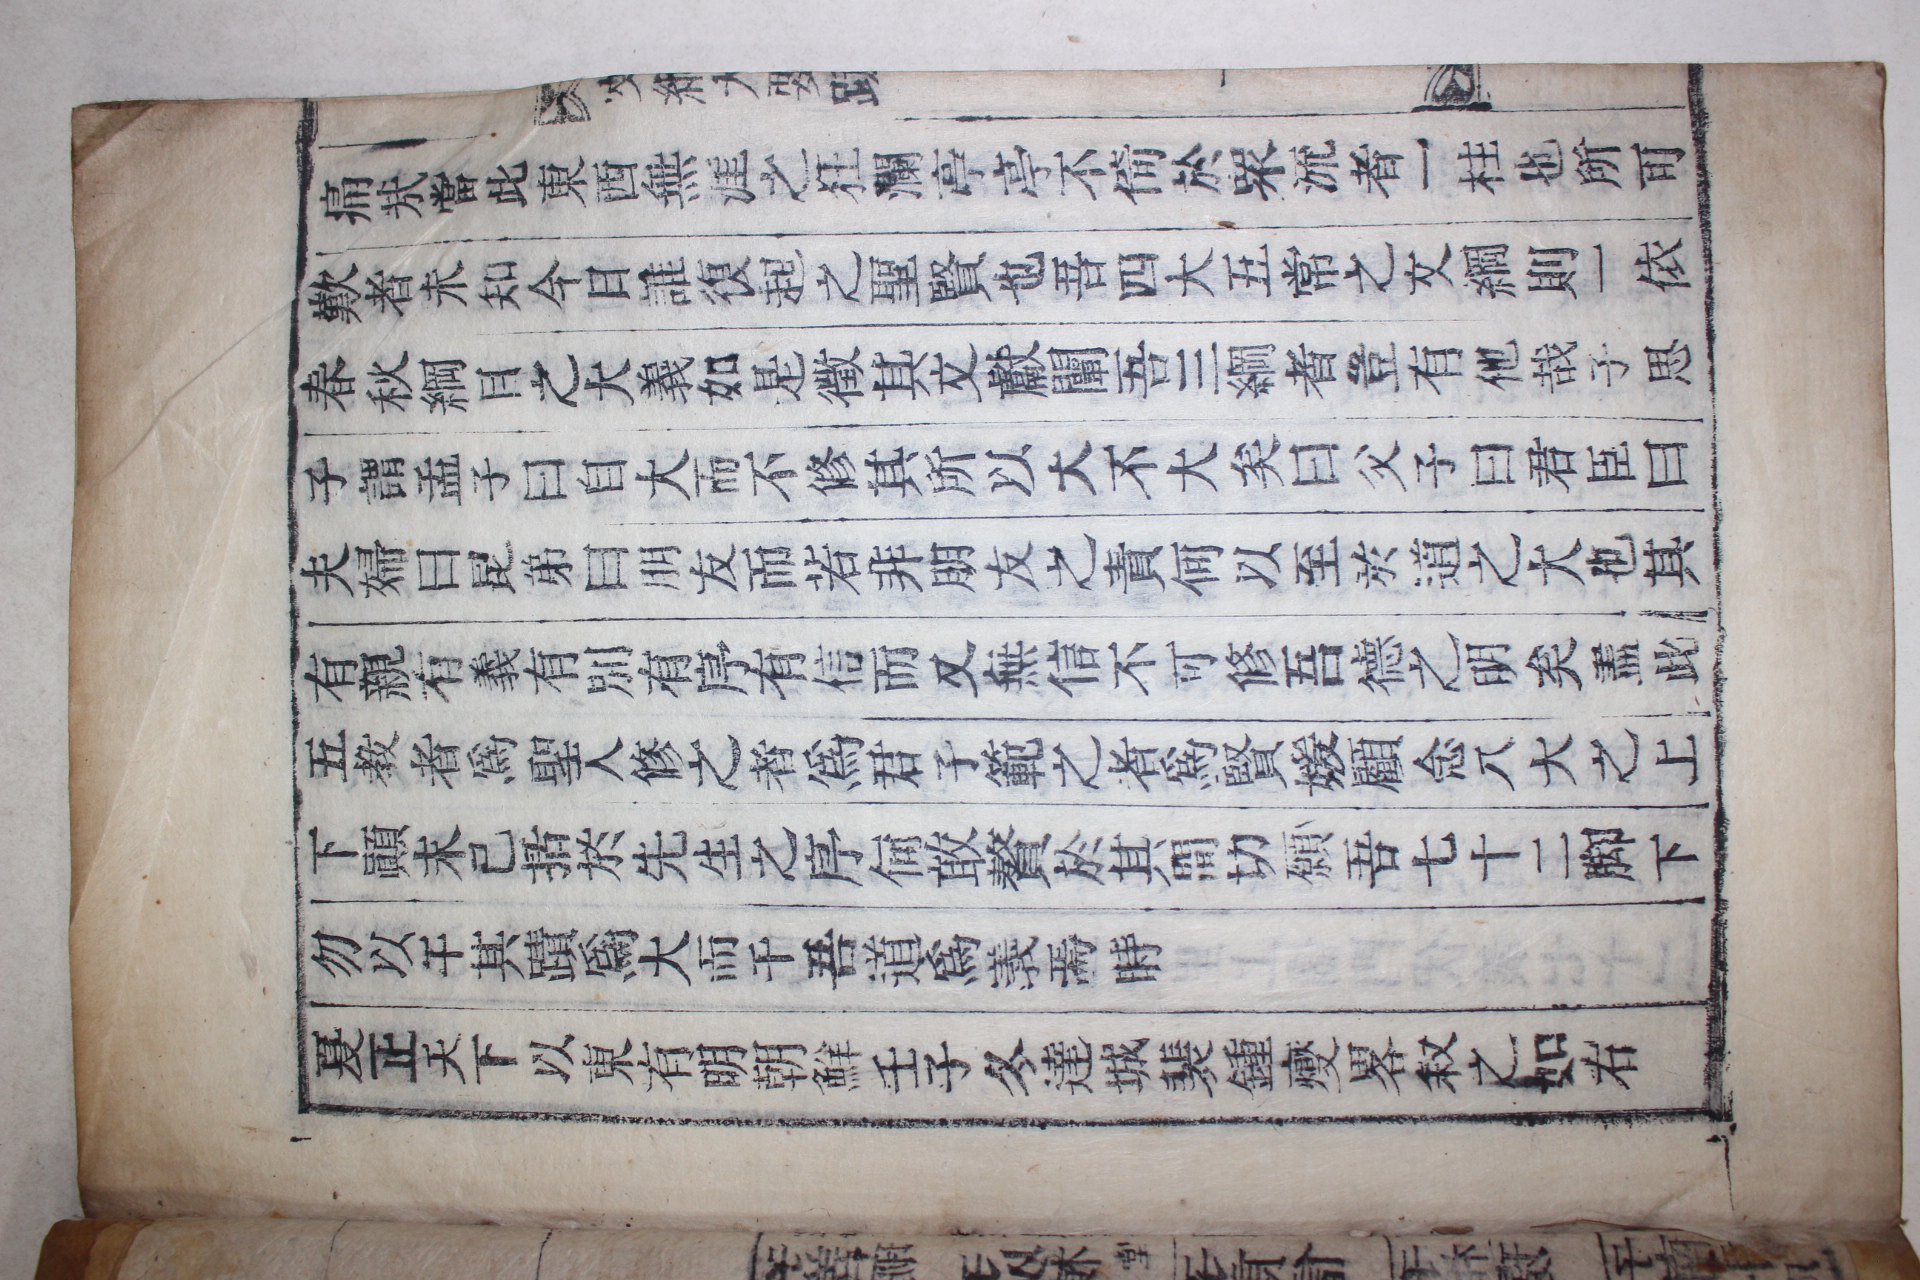 痛哉當此東西無涯之狂瀾亭亭不倚於衆流者一柱也所可
歎者未知今日誰復起之聖賢也吾四大五常之文綱則一依
春秋綱目之大義如是徵其文嚴闢吾三綱者豈有他哉子思
子謂孟子曰自大而不修其所以大不大矣曰父子曰君臣曰
夫婦曰昆弟曰朋友而若非朋友之責何以至於道之大也其
有親有義有別有序有信而又無信不可修吾德之明矣盡此
五教者爲聖人修之者爲君子範之者爲賢媛顧念八大之上
下顚末已措於先生之序何敢贅於其間切願吾七十二脚下
勿以午其蹟爲大而干吾道爲義焉時
夏正天下以東有明朝鮮壬子冬達城裴鍾燮畧叙之如右